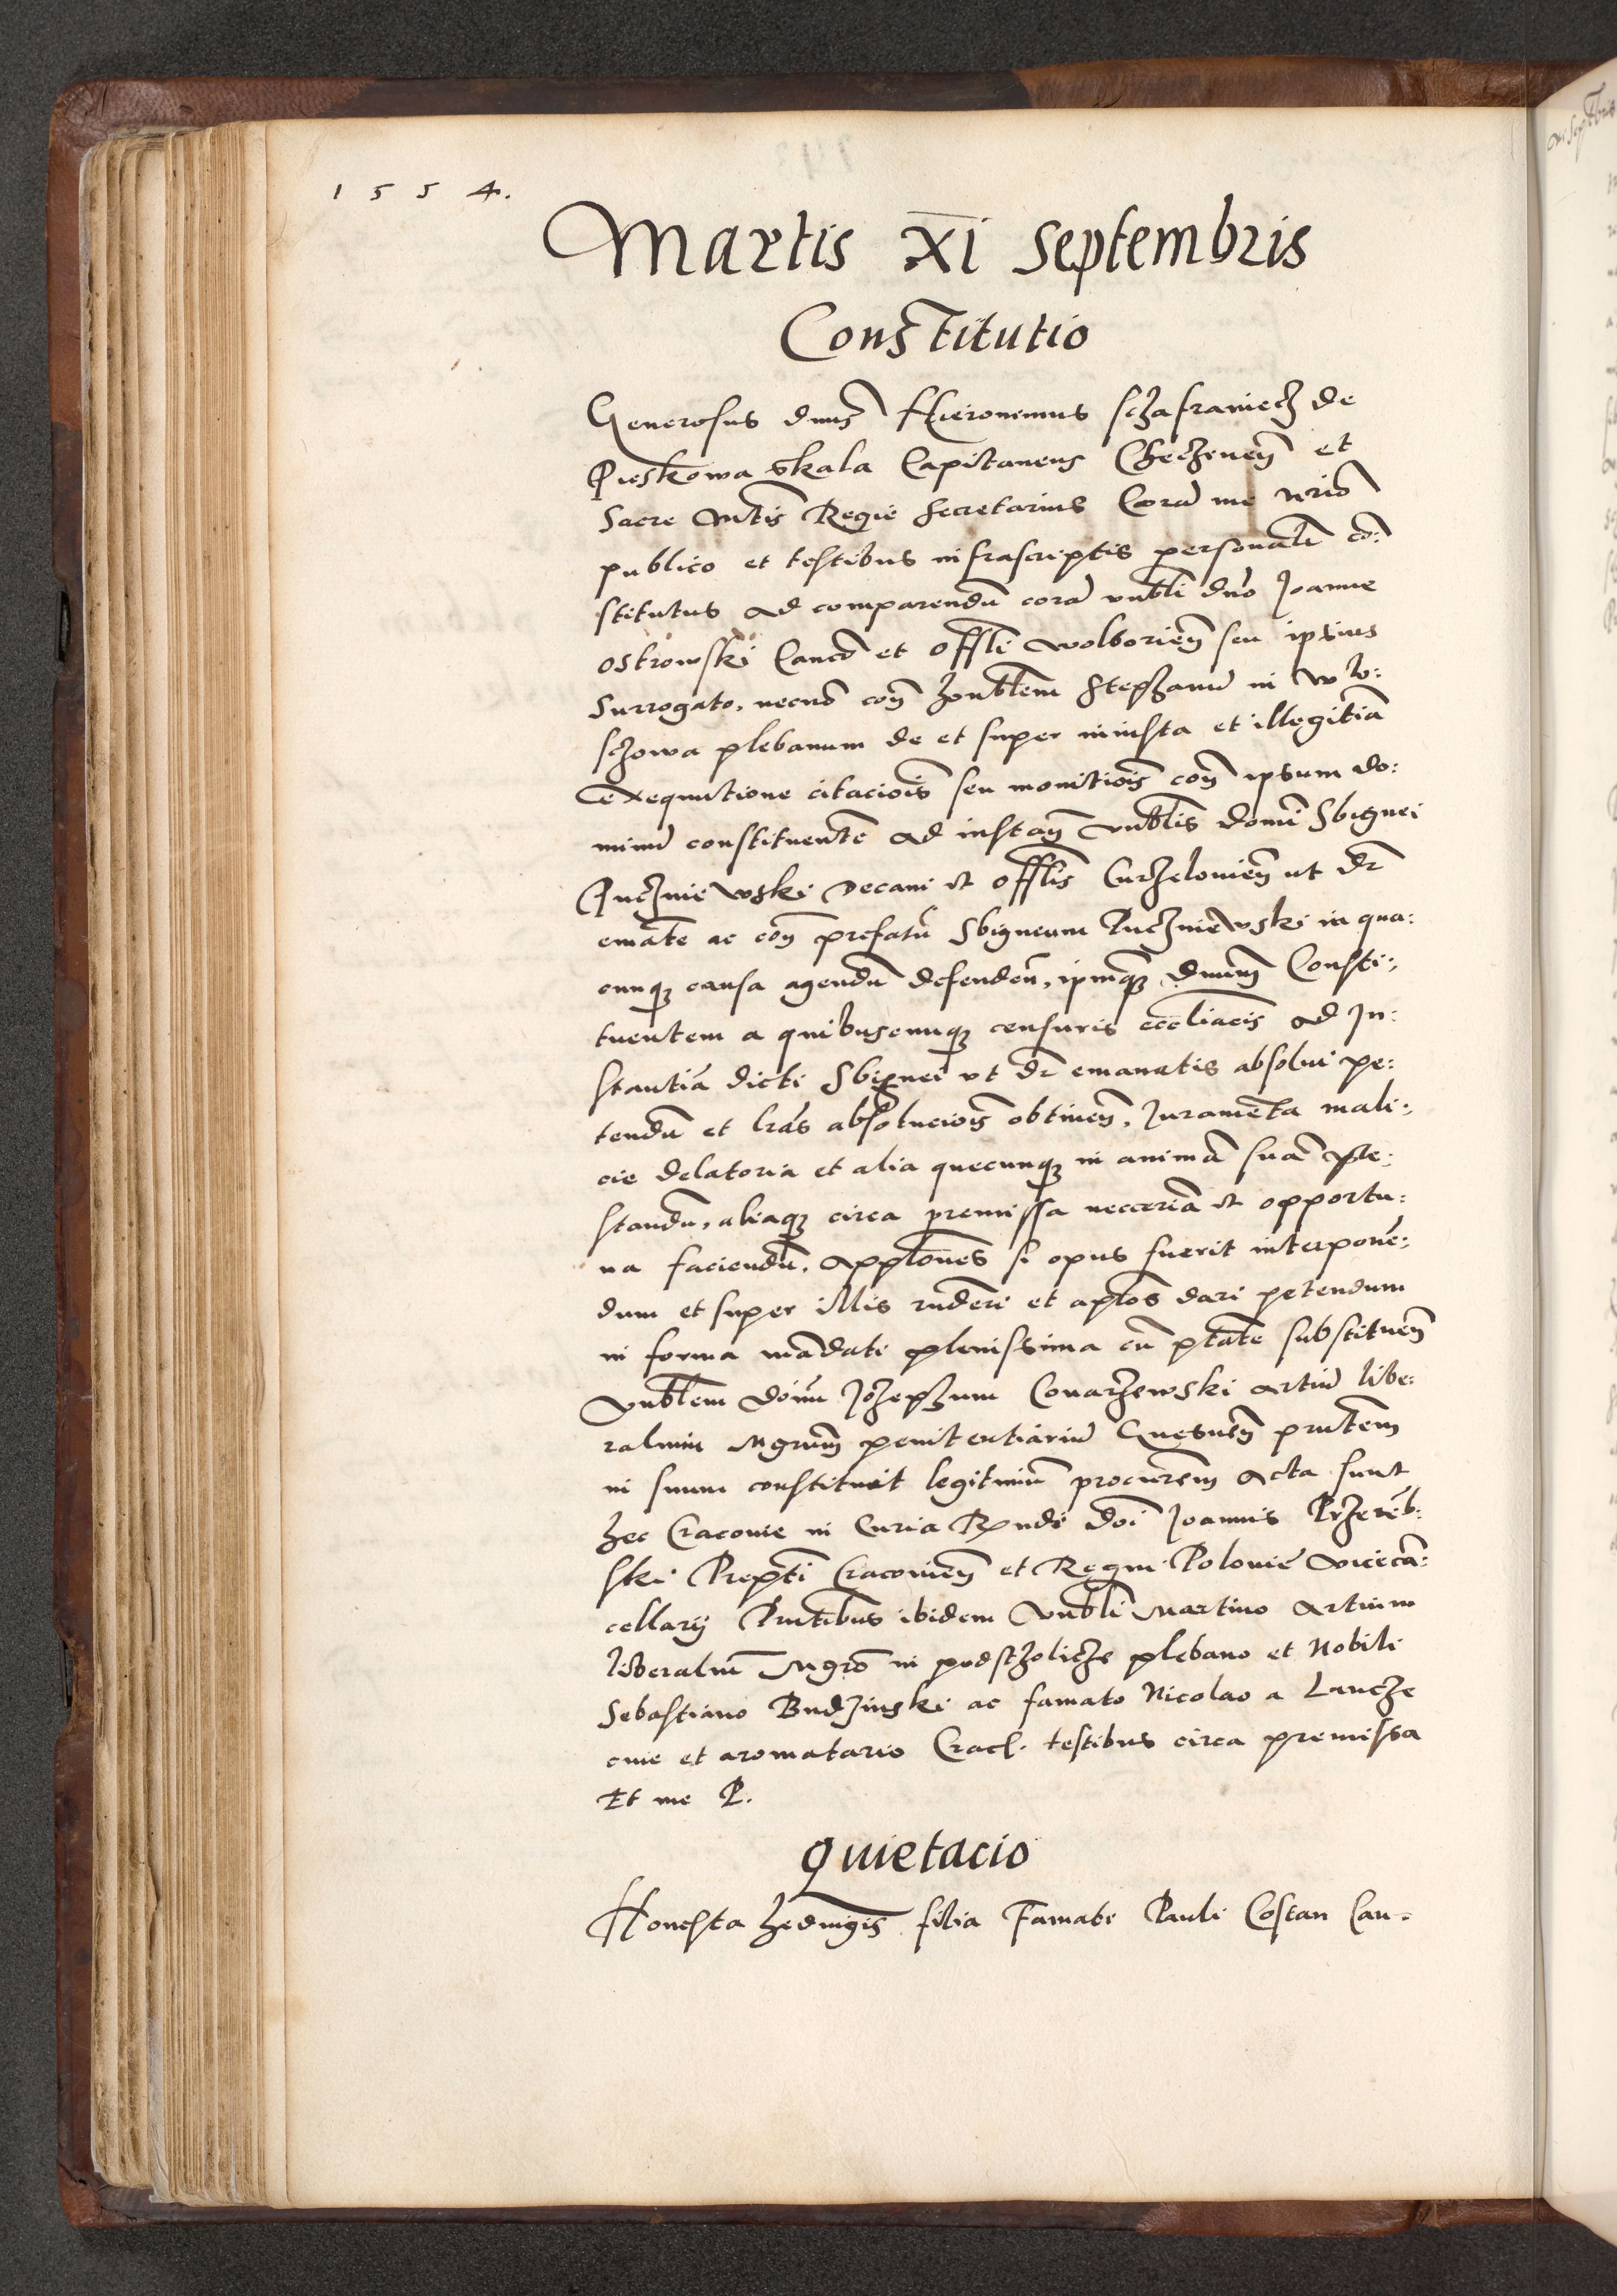 1 5 5 4.
Martis Xi Septembris
Constitutio
Generosus dnus Hieronimus Schafraniecz de
Pieskowa Skala Capitaneus Checzinen et
Sacre Mtis Regie Secretarius Cora me nrio
publico et testibus infrascriptis personalr co:
stitutus ad comparendu cora vnbli dno Joanne
ostrowski Canco et offli Wolborien seu ipsius
Surrogato, necno con honblem Stephanu in Wlo:
schowa plebanum de et super iniusta et illegitia
exequutione citaciois seu monitiois con ipsum do:
minu constituente ad instan vnblis domi Sbignei
Puczniewski Decani et offlis Curzelouien ut dr
emate ac con prefatu Sbigneum Puczniewski in qua:
cunq causa agendu defenden, ipmq dnum Consti:
tuentem a quibuscunq censuris eccliacis ad In:
stantia dicti Sbignei vt dr emanatis absolui pe:
tendu et lras absolucois obtinen, Juramenta mali:
cie delatoria et alia quecunq in anima sua pre:
standu, aliaq circa premissa necceria et opportu:
na faciendu. Appltones si opus fuerit interpone:
dum et super illis rndere et aplos dari petendum
in forma madati plenissima cu ptate substituen
Vnblem domu Jozephum Conarzewski artiu libe:
ralium Mgrum penitentiariu Gnesnen pntem
in suum constituit legitimu procurem Acta sunt
hec Cracouie in Curia Rndi doi Joannis Przereb:
ski Prepti Cracouien et Regni Polonie Viceca:
cellarij Pntibus ibidem Vnbli Martino Artium
liberaliu Mgro in podstholicze plebano et Nobili
Sebastiano Budzinski ac famato Nicolao a Lancze
ciue et aromatario Crac. testibus circa premissa
Et me P.
Quietacio
Honesta Heduigis filia Famati Pauli Costan Cau-